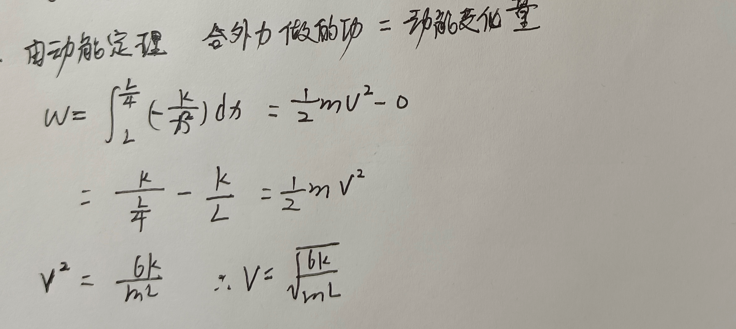 由动能定理 合外力做的功 = 动能变化量
W = ∫_L^{L/4} (-k/x²) dx = 1/2 mV² - 0
= k/(L/4) - k/L = 1/2 m V²
V² = 6k/mL ∴ V = √(6k/mL)